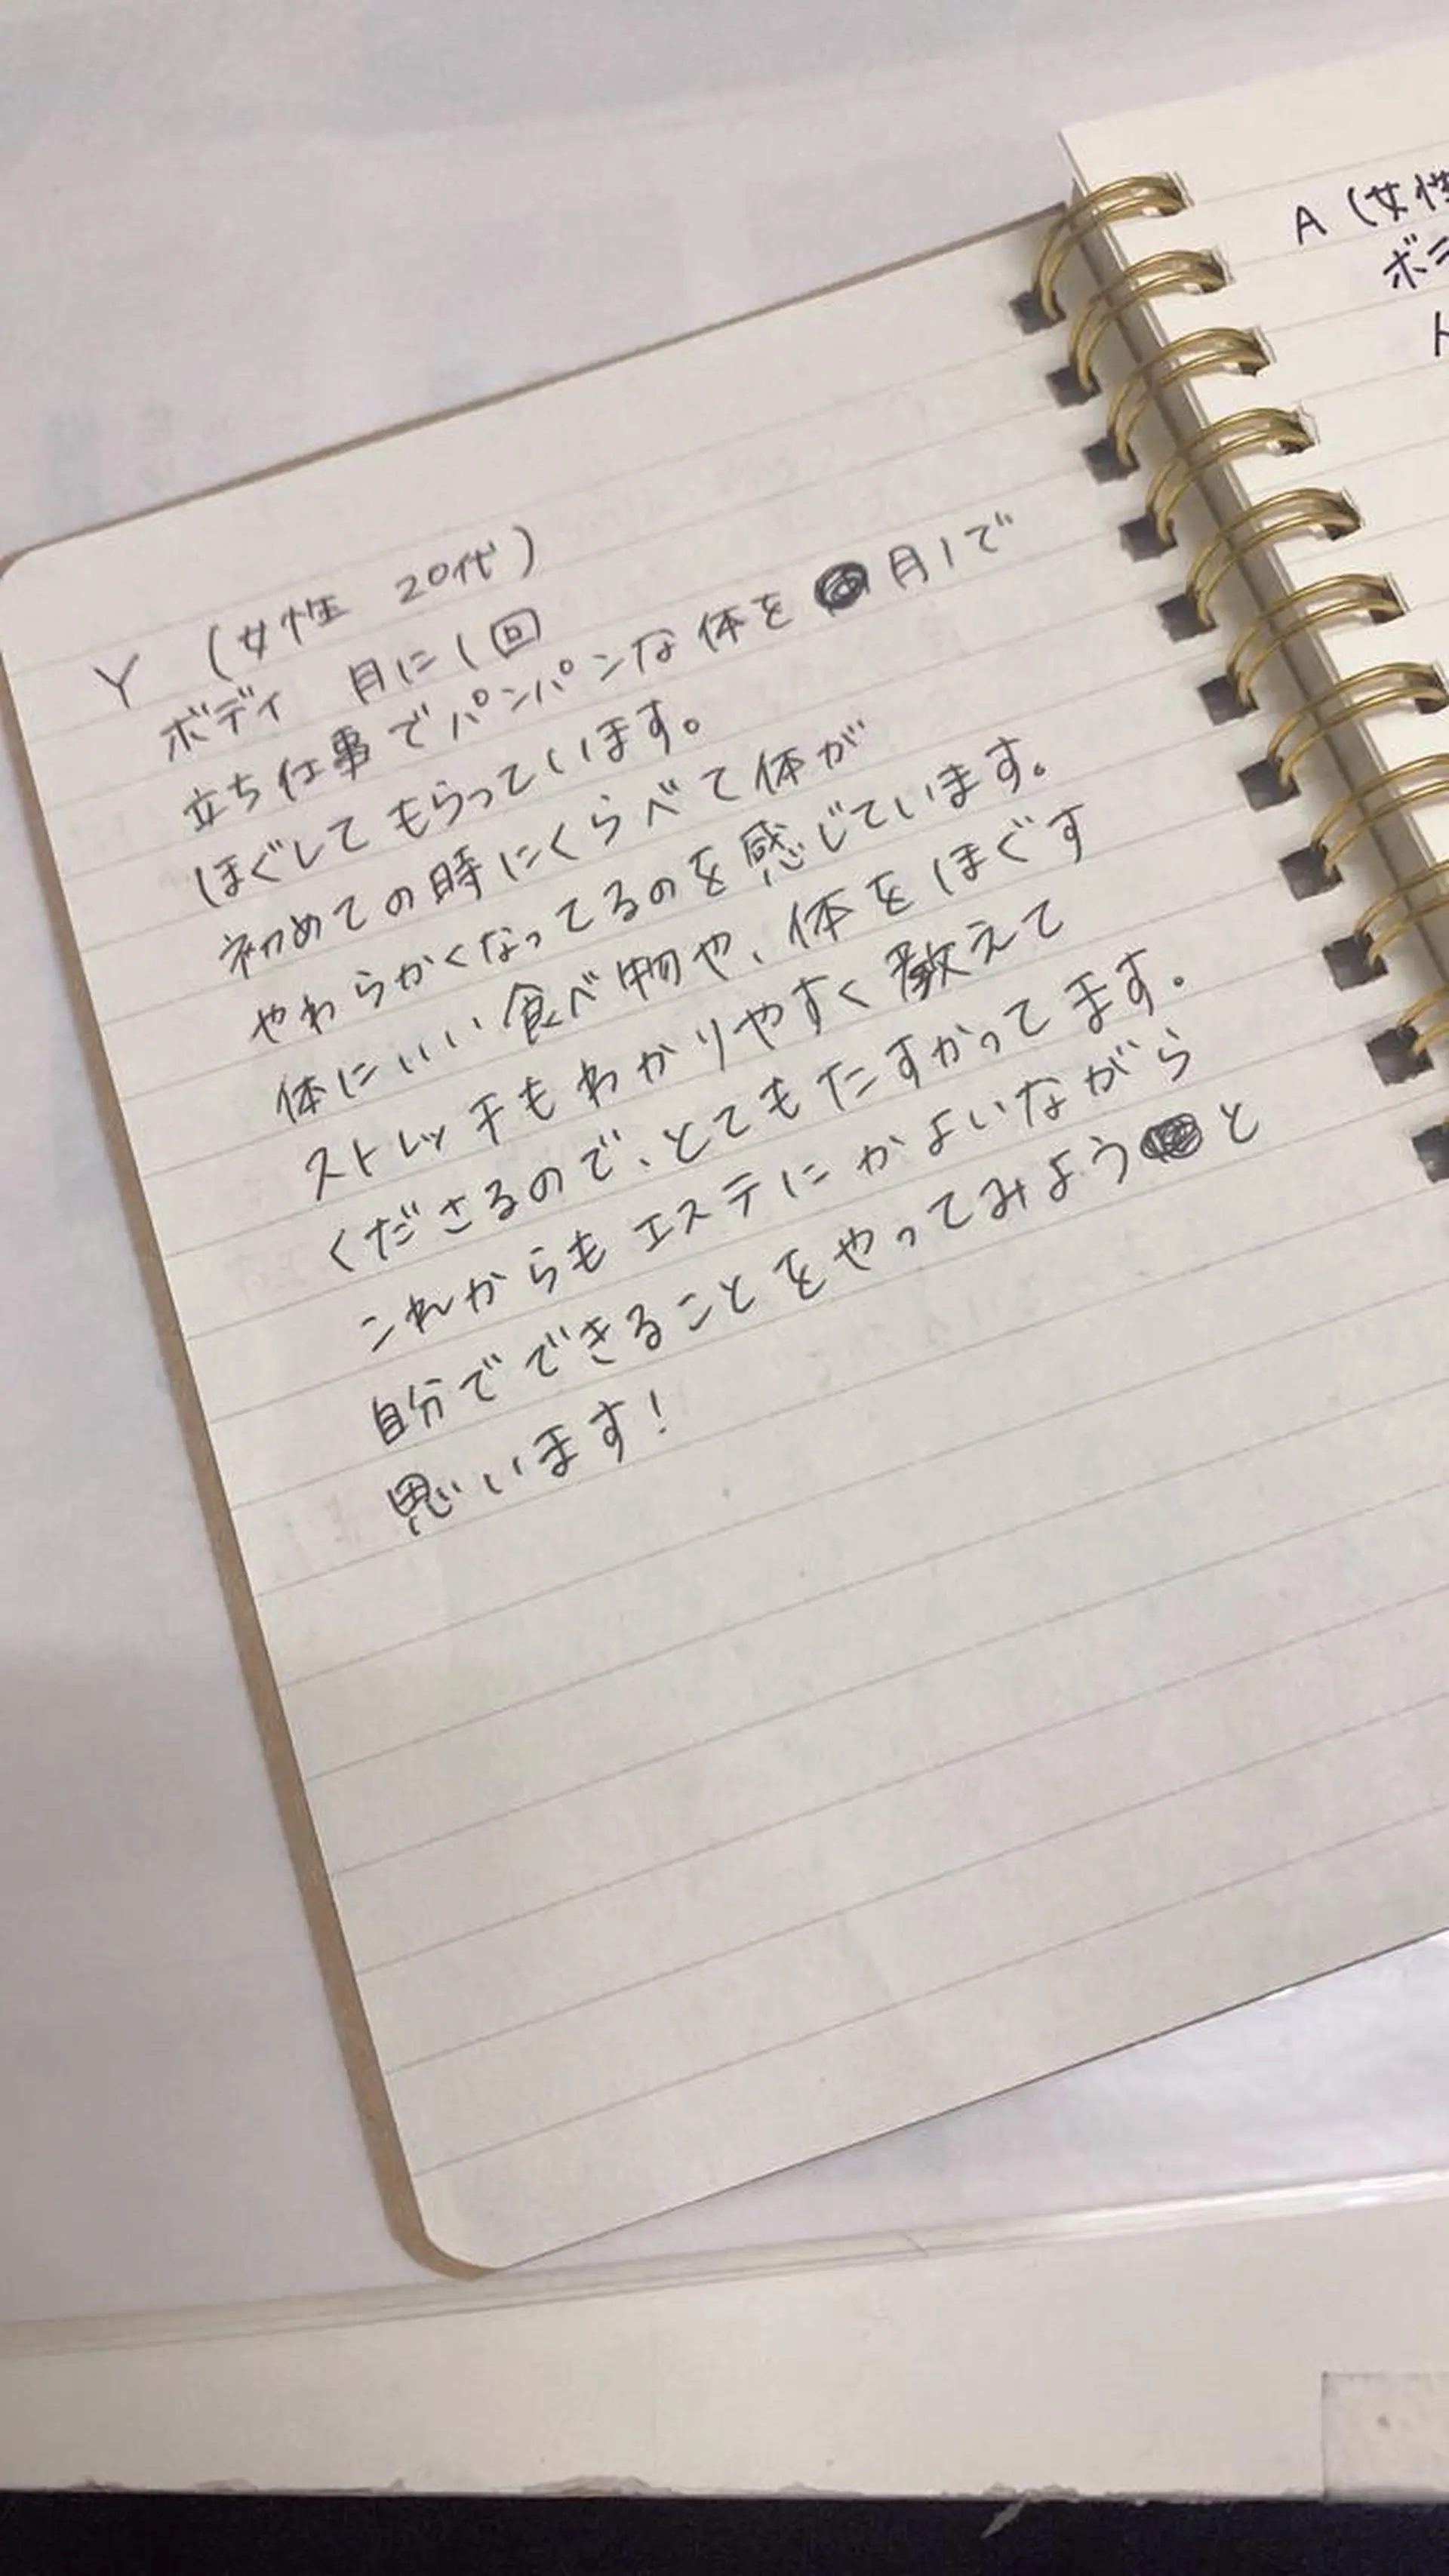 Y (女性 20代)
ボディ 月に1回
立ち仕事でパンパンな体を 月1で
ほぐしてもらっています。
初めての時にくらべて体が
やわらかくなってるのを感じています。
体にいい食べ物や、体をほぐす
ストレッチもわかりやすく教えて
くださるので、とてもたすかってます。
これからもエステにかよいながら
自分でできることをやってみようと
思います!
A (女性
ボデ